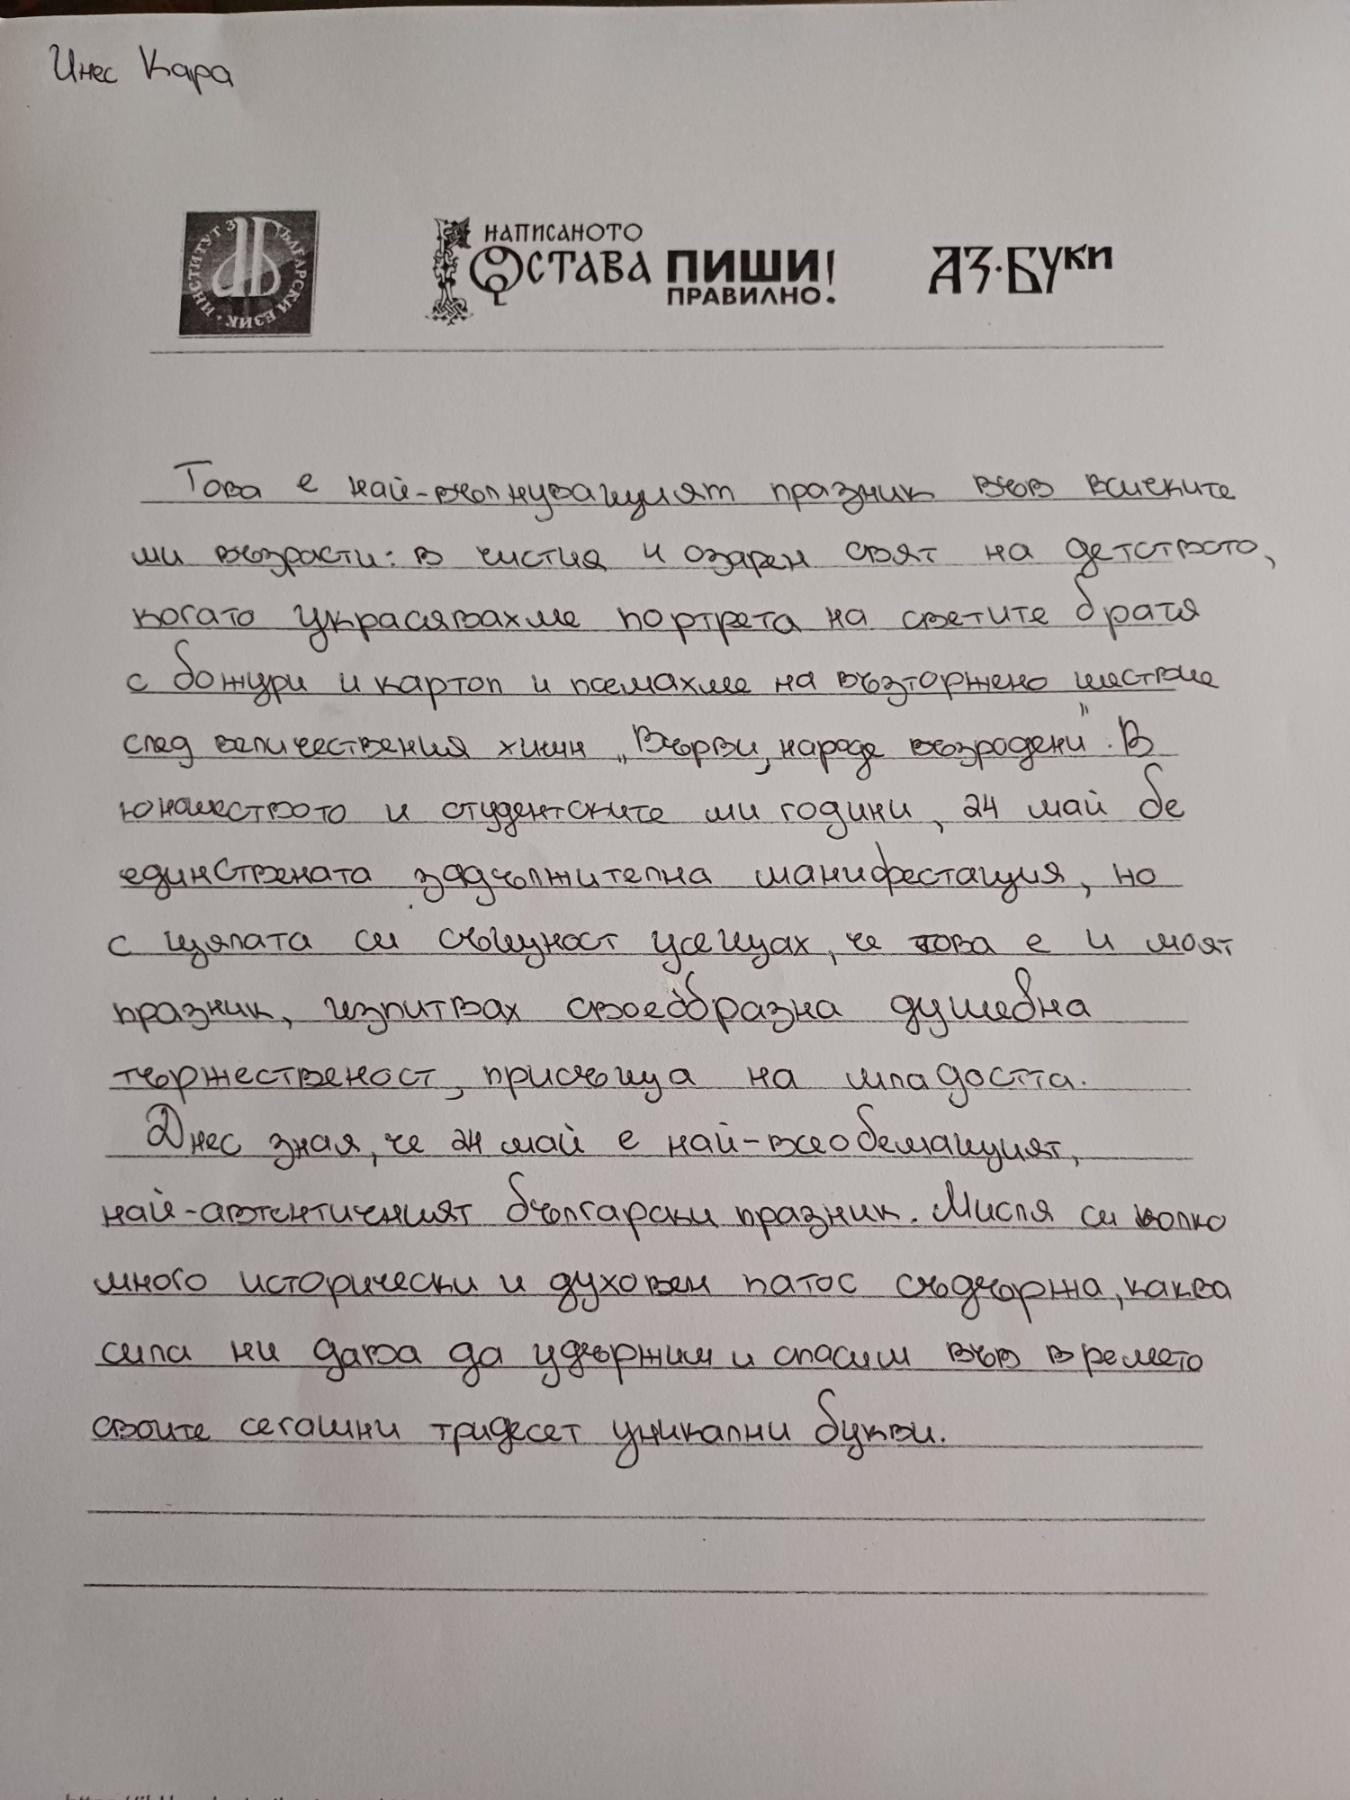 Инес Кара
ИНСТИТУТ ЗА БЪЛГАРСКИ ЕЗИК
НАПИСАНОТО
ОСТАВА ПИШИ!
ПРАВИЛНО.
АЗ·БУКИ
Това е най-вълнуващият празник във всеките
ми възрасти: в чистия и озарен свят на детството,
когато украсявахме портрета на светите братя
с божури и картоп и поемахме на възторжено шествие
след величествения химн „Върви, народе възродени". В
юношеството и студентските ми години, 24 май бе
единствената задължителна манифестация, но
с цялата си същност усещах, че това е и моят
празник, изпитвах своеобразна душевна
тържественост, присъща на младостта.
Днес зная, че 24 май е най-всеобемащият,
най-автентичният български празник. Мисля си колко
много исторически и духовен патос съдържа, каква
сила ни дава да удържим и спасим във времето
своите сегашни тридесет уникални букви.